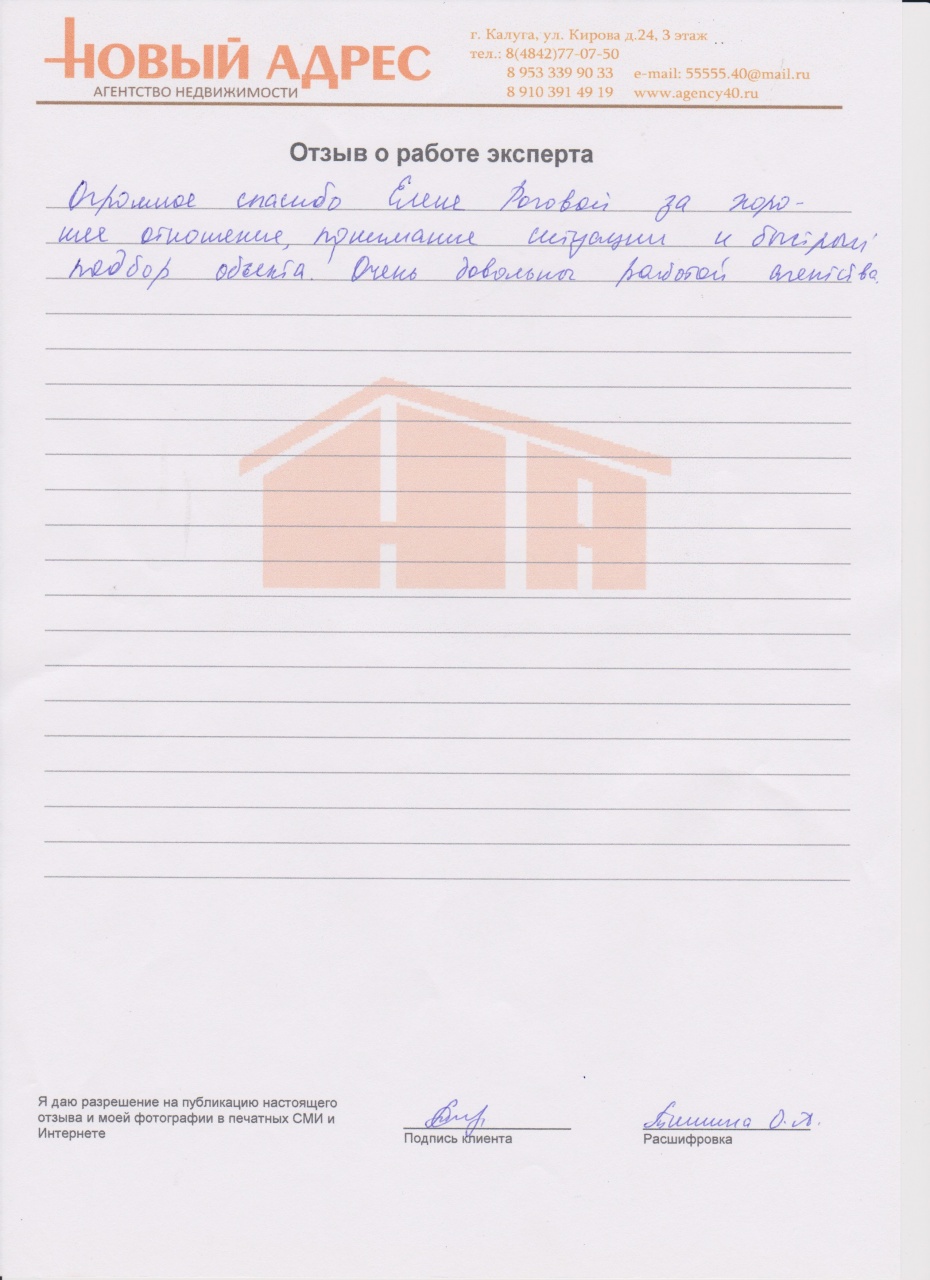 НОВЫЙ АДРЕС
АГЕНТСТВО НЕДВИЖИМОСТИ
г. Калуга, ул. Кирова д.24, 3 этаж
тел.: 8(4842)77-07-50
8 953 339 90 33 e-mail: 55555.40@mail.ru
8 910 391 49 19 www.agency40.ru
Отзыв о работе эксперта
Огромное спасибо Елене Роговой за хоро-
шее отношение, понимание ситуации и быстрый
подбор объекта. Очень довольны работой агентства.
НА
Я даю разрешение на публикацию настоящего
отзыва и моей фотографии в печатных СМИ и
Интернете
Подпись клиента
О.А.
Расшифровка